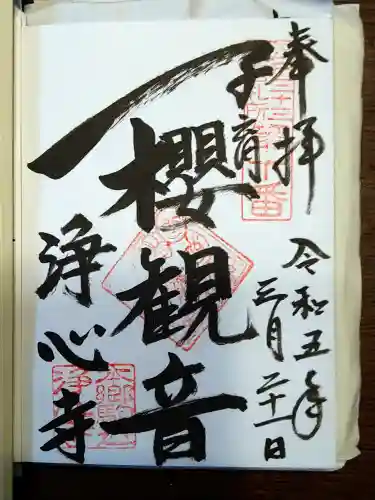 奉拝
令和五年
三月二十一日
子育
櫻観音
浄心寺